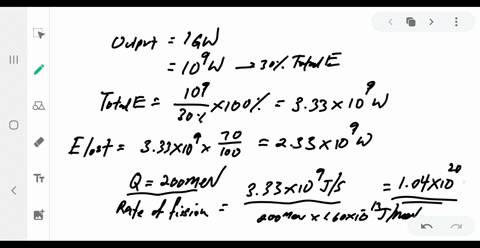 Output = 1GW
= 10^9 W → 30% Total E
Total E = 10^9/30% × 100% = 3.33 × 10^9 W
E lost = 3.33×10^9 × 70/100 = 2.33 × 10^9 W
Q = 200 MeV
Rate of fission = 3.33 × 10^9 J/s / 200 MeV × 1.60×10^-13 J/MeV = 1.04 × 10^20
Tt